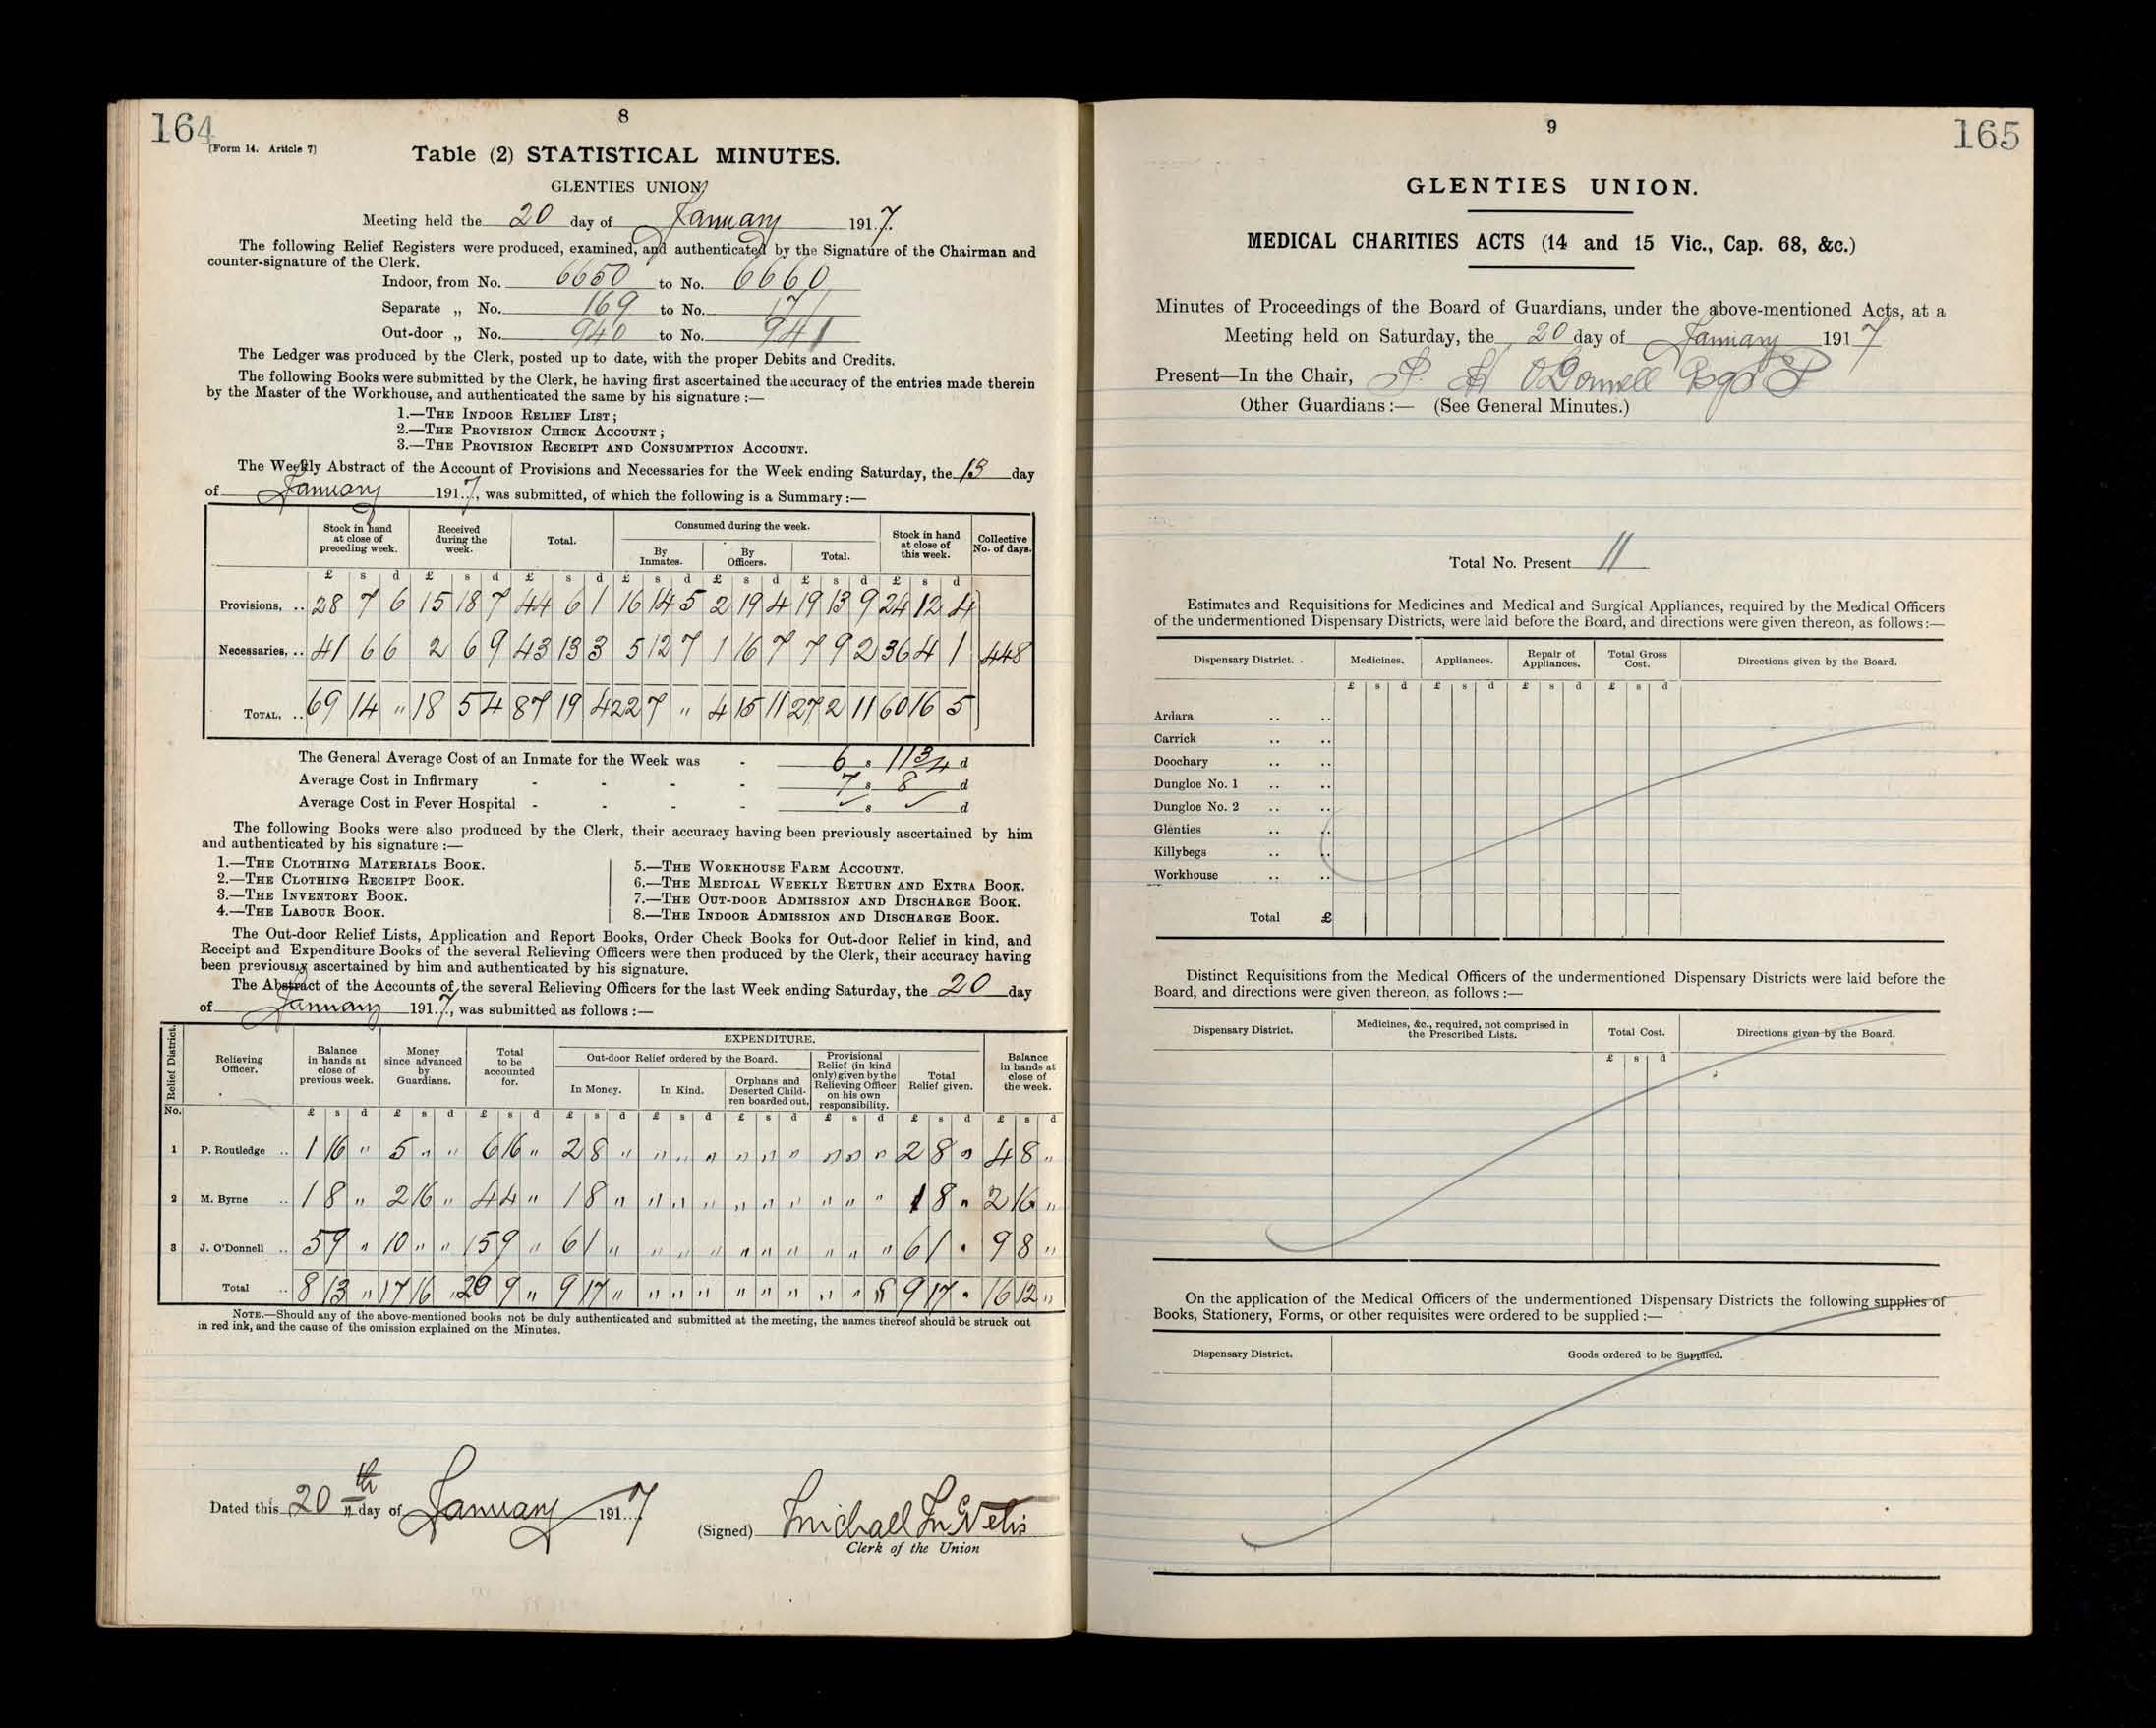 164
8
[Form 14. Article 7]
Table (2) STATISTICAL MINUTES.
GLENTIES UNION
Meeting held the 20 day of January 1917.
The following Relief Registers were produced, examined, and authenticated by the Signature of the Chairman and
counter-signature of the Clerk.
Indoor, from No. 6650 to No. 6660
Separate „ No. 169 to No. 171
Out-door „ No. 940 to No. 941
The Ledger was produced by the Clerk, posted up to date, with the proper Debits and Credits.
The following Books were submitted by the Clerk, he having first ascertained the accuracy of the entries made therein
by the Master of the Workhouse, and authenticated the same by his signature :—
1.—THE INDOOR RELIEF LIST ;
2.—THE PROVISION CHECK ACCOUNT ;
3.—THE PROVISION RECEIPT AND CONSUMPTION ACCOUNT.
The Weekly Abstract of the Account of Provisions and Necessaries for the Week ending Saturday, the 13 day
of January 1917, was submitted, of which the following is a Summary :—
Stock in hand at close of preceding week. Received during the week. Total. Consumed during the week. By Inmates. By Officers. Total. Stock in hand at close of this week. Collective No. of days.
£ s d £ s d £ s d £ s d £ s d £ s d £ s d
Provisions, .. 28 7 6 15 18 7 44 6 1 16 14 5 2 19 4 19 13 9 24 12 4
Necessaries, .. 41 6 6 2 6 9 43 13 3 5 12 7 1 16 7 7 9 2 36 4 1 448
TOTAL, .. 69 14 " 18 5 4 87 19 4 22 7 " 4 15 11 27 2 11 60 16 5
The General Average Cost of an Inmate for the Week was - 6 s 11 3/4 d
Average Cost in Infirmary - - - - 7 s 8 d
Average Cost in Fever Hospital - - - - s d
The following Books were also produced by the Clerk, their accuracy having been previously ascertained by him
and authenticated by his signature :—
1.—THE CLOTHING MATERIALS BOOK.
2.—THE CLOTHING RECEIPT BOOK.
3.—THE INVENTORY BOOK.
4.—THE LABOUR BOOK.
5.—THE WORKHOUSE FARM ACCOUNT.
6.—THE MEDICAL WEEKLY RETURN AND EXTRA BOOK.
7.—THE OUT-DOOR ADMISSION AND DISCHARGE BOOK.
8.—THE INDOOR ADMISSION AND DISCHARGE BOOK.
The Out-door Relief Lists, Application and Report Books, Order Check Books for Out-door Relief in kind, and
Receipt and Expenditure Books of the several Relieving Officers were then produced by the Clerk, their accuracy having
been previously ascertained by him and authenticated by his signature.
The Abstract of the Accounts of the several Relieving Officers for the last Week ending Saturday, the 20 day
of January 1917, was submitted as follows :—
Relief District. No. Relieving Officer. Balance in hands at close of previous week. Money since advanced by Guardians. Total to be accounted for. EXPENDITURE. Out-door Relief ordered by the Board. In Money. In Kind. Orphans and Deserted Children boarded out. Provisional Relief (in kind only) given by the Relieving Officer on his own responsibility. Total Relief given. Balance in hands at close of the week.
£ s d £ s d £ s d £ s d £ s d £ s d £ s d £ s d £ s d
1 P. Routledge .. 1 16 " 5 " " 6 16 " 2 8 " " " " " " " " " " 2 8 " 4 8 "
2 M. Byrne .. 1 8 " 2 16 " 4 4 " 1 8 " " " " " " " " " " 1 8 " 2 16 "
3 J. O'Donnell .. 5 9 " 10 " " 15 9 " 6 1 " " " " " " " " " " 6 1 " 9 8 "
Total .. 8 13 " 17 16 " 26 9 " 9 17 " " " " " " " " " " 9 17 " 16 12 "
NOTE.—Should any of the above-mentioned books not be duly authenticated and submitted at the meeting, the names thereof should be struck out
in red ink, and the cause of the omission explained on the Minutes.
Dated this 20th day of January 1917
(Signed) Michael McNelis
Clerk of the Union
9
165
GLENTIES UNION.
MEDICAL CHARITIES ACTS (14 and 15 Vic., Cap. 68, &c.)
Minutes of Proceedings of the Board of Guardians, under the above-mentioned Acts, at a
Meeting held on Saturday, the 20 day of January 1917
Present—In the Chair, O'Donnell Esqr
Other Guardians :— (See General Minutes.)
Total No. Present 11
Estimates and Requisitions for Medicines and Medical and Surgical Appliances, required by the Medical Officers
of the undermentioned Dispensary Districts, were laid before the Board, and directions were given thereon, as follows :—
Dispensary District. Medicines. Appliances. Repair of Appliances. Total Gross Cost. Directions given by the Board.
£ s d £ s d £ s d £ s d
Ardara .. ..
Carrick .. ..
Doochary .. ..
Dungloe No. 1 .. ..
Dungloe No. 2 .. ..
Glenties .. ..
Killybegs .. ..
Workhouse .. ..
Total £
Distinct Requisitions from the Medical Officers of the undermentioned Dispensary Districts were laid before the
Board, and directions were given thereon, as follows :—
Dispensary District. Medicines, &c., required, not comprised in the Prescribed Lists. Total Cost. Directions given by the Board.
£ s d
On the application of the Medical Officers of the undermentioned Dispensary Districts the following supplies of
Books, Stationery, Forms, or other requisites were ordered to be supplied :—
Dispensary District. Goods ordered to be Supplied.